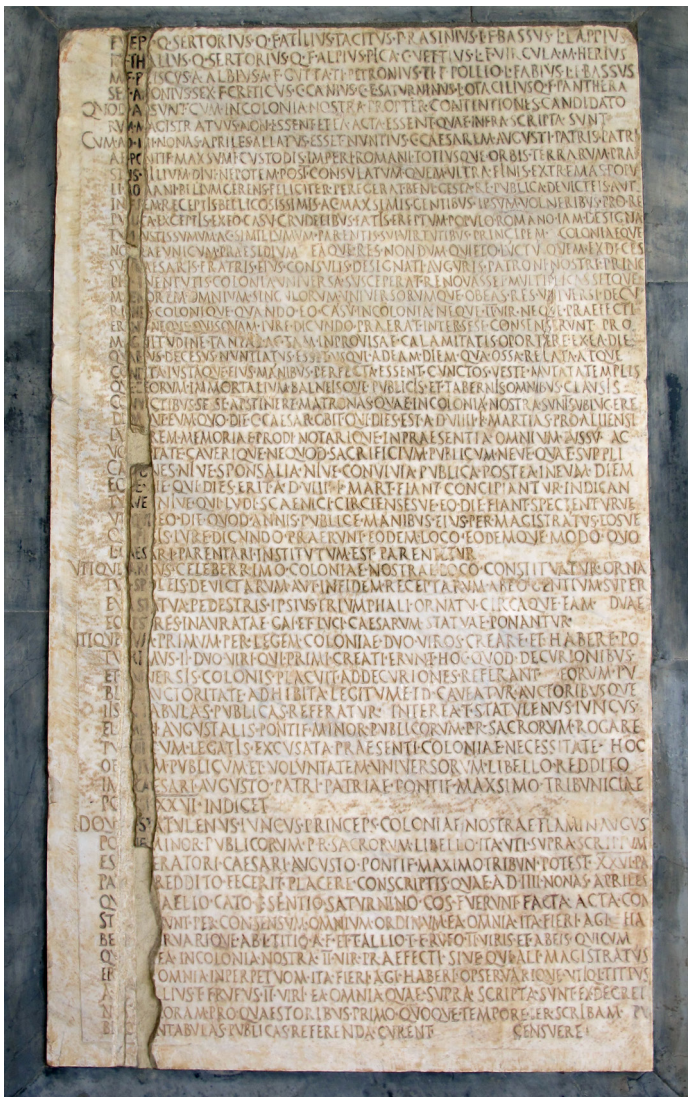 EP Q·SERTORIVS·Q·F·ATILIVS·TACITVS·P·RASINIVS·L·F·BASSVS·L·LAPPIVS
ALLVS·Q·SERTORIVS·Q·F·ALPIVS·PICA·C·VETTIVS·L·F·VIRGVLA·M·HERIVS
PRISCVS·A·ALBIVS·A·F·GVTTA·TI·PETRONIVS·TI·F·POLLIO·L·FABIVS·L·F·BASSVS
SEX·APONIVS·SEX·F·CRETICVS·C·CANIVS·C·F·SATVRNINVS·L·OTACILIVS·Q·F·PANTHERA
QVOD·A SVNT·CVM·IN·COLONIA·NOSTRA·PROPTER·CONTENTIONES·CANDIDATO
RVM·MAGISTRATVVS·NON·ESSENT·ET·EA·ACTA·ESSENT·QVAE·INFRA·SCRIPTA·SVNT
CVM·A·D·NONAS·APRILES·ALLATVS·ESSET·NVNTIVS·C·CAESAREM·AVGVSTI·PATRIS·PATRI
PONTIF·MAXSVMI·CVSTODIS·IMPERI·ROMANI·TOTIVSQVE·ORBIS·TERRARVM·PRAE
FILIVM·DIVI·NEPOTEM·POST·CONSVLATVM·QVEM·VLTRA·FINIS·EXTREMAS·POPVLI
ROMANI·BELLVM·GERENS·FELICITER·PEREGERAT·BENE·GESTA·RE·PVBLICA·DEVICTEIS·AVT
IN FIDEM·RECEPTIS·BELLICOSISSIMIS·AC·MAXSIMIS·GENTIBVS·IPSVM·VOLNERIBVS·PRO·RE
EXCEPTIS·EX·EO·CASV·CRVDELIBVS·FATIS·EREPTVM·POPVLO·ROMANO·IAM·DESIGNA
IVSTISSVMVM·AC·SIMILLVMVM·PARENTIS·SVI·VIRTVTIBVS·PRINCIPEM·COLONIAEQVE
NOSTRAE·VNICVM·PRAESIDIVM·EAQVE·RES·NONDVM·QVIETO·LVCTV·QVEM·EX·DECES
CAESARIS·FRATRIS·EIVS·CONSVLIS·DESIGNATI·AVGVRIS·PATRONI·NOSTRI·PRINC
IVVENTVTIS·COLONIA·VNIVERSA·SVSCEPERAT·RENOVASSET·MVLTIPLICASSITQVE
MAEROREM·OMNIVM·SINGVLORVM·VNIVERSORVMQVE·OB·EAS·RES·VNIVERSI·DECV
RIONES·COLONIQVE·QVANDO·EO·CASV·IN·COLONIA·NEQVE·II·VIR·NEQVE·PRAEFECTI
ERANT·NEQVE·QVISQVAM·IVRE·DICVNDO·PRAERAT·INTER·SESE·CONSENSERVNT·PRO
MAGNITVDINE·TANTAE·AC·TAM·INPROVISAE·CALAMITATIS·OPORTERE·EX·EA·DIE
QVA·EIVS·DECESVS·NVNTIATVS·ESSET·VSQVI·AD·EAM·DIEM·QVA·OSSA·RELATA·ATQVE
IVSTAQVE·EIVS·MANIBVS·PERFECTA·ESSENT·CVNCTOS·VESTE·MVTATA·TEMPLIS
QVE·DEORVM·IMMORTALIVM·BALNEISQVE·PVBLICIS·ET·TABERNIS·OMNIBVS·CLAVSIS
CONVICTIBVS·SESE·APSTINERE·MATRONAS·QVAE·IN·COLONIA·NOSTRA·SVNT·SVBLVGERE
EVMQVO·DIE·C·CAESAR·OBIT·QVI·DIES·EST·A·D·VIIII·K·MARTIAS·PRO·ALLIENSI
LVGVBREM·MEMORIAE·PRODI·NOTARIQVE·IN·PRAESENTIA·OMNIVM·IVSSV·AC
VOLVNTATE·CAVERIQVE·NE·QVOD·SACRIFICIVM·PVBLICVM·NEVE·QVAE·SVPPLI
CATIONES·NIVE·SPONSALIA·NIVE·CONVIVIA·PVBLICA·POSTEA·IN·EVM·DIEM
EOVE·DIE·QVI·DIES·ERIT·A·D·VIIII·K·MART·FIANT·CONCIPIANTVR·INDICAN
TVRVE·NIVE·QVI·LVDI·SCAENICI·CIRCIENSESVE·EO·DIE·FIANT·SPECTENTVRVE
VTI·EO·DIE·QVOD·ANNIS·PVBLICE·MANIBVS·EIVS·PER·MAGISTRATVS·EOSVE
QVI PISIS·IVRE·DICVNDO·PRAERVNT·EODEM·LOCO·EODEMQVE·MODO·QVO
L·CAESARI·PARENTARI·INSTITVTVM·EST·PARENTETVR
VTIQVE ARCVS·CELEBERRIMO·COLONIAE·NOSTRAE·LOCO·CONSTITVATVR·ORNA
TVS·SPOLEIS·DEVICTARVM·AVT·IN·FIDEM·RECEPTARVM·AB·EO·GENTIVM·SVPER
EVM·STATVA·PEDESTRIS·IPSIVS·TRIVMPHALI·ORNATV·CIRCAQVE·EAM·DVAE
EQVESTRES·INAVRATAE·GAI·ET·LVCI·CAESARVM·STATVAE·PONANTVR
VTIQVE·CVM·PRIMVM·PER·LEGEM·COLONIAE·DVO·VIROS·CREARE·ET·HABERE·PO
TVERIMVS·II·DVO·VIRI·QVI·PRIMI·CREATI·ERVNT·HOC·QVOD·DECVRIONIBVS
ET·VNIVERSIS·COLONIS·PLACVIT·AD·DECVRIONES·REFERANT·EORVM·PV
BLICA·AVCTORITATE·ADHIBITA·LEGITVME·ID·CAVEATVR·AVCTORIBVSQVE
IIS·IN·TABVLAS·PVBLICAS·REFERATVR·INTEREA·T·STATVLENVS·IVNCVS
FLAMEN·AVGVSTALIS·PONTIF·MINOR·PVBLICORVM·P·R·SACRORVM·ROGARE
TVR·VTI·CVM·LEGATIS·EXCVSATA·PRAESENTI·COLONIAE·NECESSITATE·HOC
OFFICIVM·PVBLICVM·ET·VOLVNTATEM·VNIVERSORVM·LIBELLO·REDDITO
IMP·CAESARI·AVGVSTO·PATRI·PATRIAE·PONTIF·MAXSIMO·TRIBVNICIAE
POTEST·XXVI·INDICET
IDQVE T·STATVLENVS·IVNCVS·PRINCEPS·COLONIAE·NOSTRAE·FLAMIN·AVGVS
MINOR·PVBLICORVM·P·R·SACRORVM·LIBELLO·ITA·VTI·SVPRA·SCRIPTVM
EST·IMPERATORI·CAESARI·AVGVSTO·PONTIF·MAXIMO·TRIBVN·POTEST·XXVI·PA
REDDITO·FECERIT·PLACERE·CONSCRIPTIS·QVAE·A·D·IIII·NONAS·APRILES
QVAE SEX·AELIO·CATO·C·SENTIO·SATVRNINO·COS·FVERVNT·FACTA·ACTA·CON
STITVTA·SVNT·PER·CONSENSVM·OMNIVM·ORDINVM·EA·OMNIA·ITA·FIERI·AGI·HA
BERI·OPSERVARIQVE·AB·L·TITIO·A·F·ET·T·ALLIO·T·F·RVFO·II·VIRIS·ET·AB·EIS·QVICVM
QVE·POSTEA·IN·COLONIA·NOSTRA·II·VIR·PRAEFECTI·SIVE·QVI·ALI·MAGISTRATVS
ERVNT·OMNIA·IN·PERPETVOM·ITA·FIERI·AGI·HABERI·OPSERVARIQVE·VTIQ·L·TITIVS
ALLIVS·T·F·RVFVS·II·VIRI·EA·OMNIA·QVAE·SVPRA·SCRIPTA·SVNT·EX·DECRET
NOSTRO·CORAM·PRO·QVAESTORIBVS·PRIMO·QVOQVE·TEMPORE·PER·SCRIBAM·PV
BLICVM·IN·TABVLAS·PVBLICAS·REFERENDA·CVRENT CENSVERE